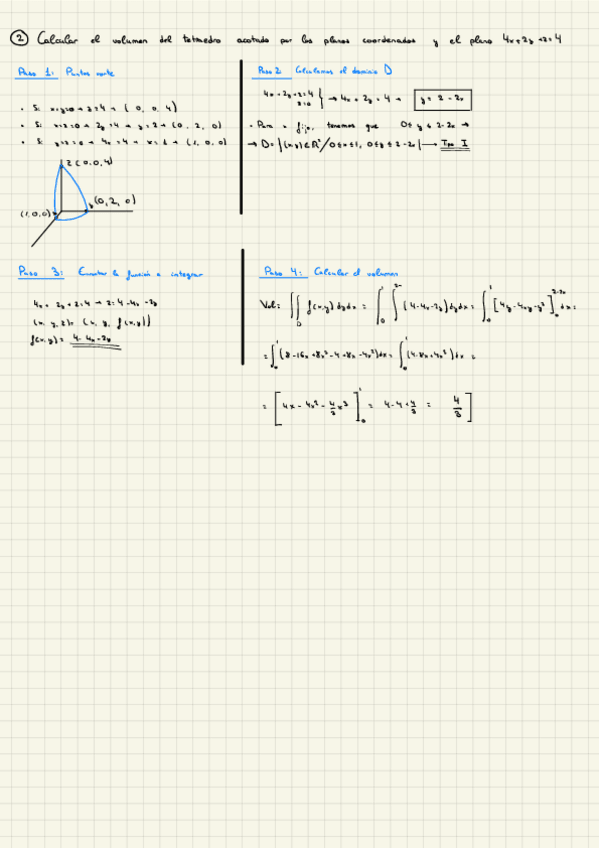 ② Calcular el volumen del tetraedro acotado por los planos coordenados y el plano 4x+2y+z=4
Paso 1: Puntos corte
• Si x=y=0 → z=4 → (0, 0, 4)
• Si x=z=0 → 2y=4 → y=2 → (0, 2, 0)
• Si y=z=0 → 4x=4 → x=1 → (1, 0, 0)
z (0,0,4)
(1,0,0)
y (0, 2, 0)
Paso 2 Calculamos el dominio D
4x+2y+z=4
z=0 } → 4x + 2y = 4 → y = 2 - 2x
• Para x fijo, tenemos que 0≤ y ≤ 2-2x →
→ D= {(x,y)∈R²/0≤x≤1, 0≤y≤2-2x} → Tipo I
Paso 3: Encontrar la función a integrar
4x + 2y + z = 4 → z = 4-4x-2y
(x, y, z) = (x, y, f(x,y))
f(x,y) = 4-4x-2y
Paso 4: Calcular el volumen
Vol = ∬_D f(x,y) dy dx = ∫_0^1 ∫^{2-} (4-4x-2y) dy dx = ∫_0^1 [4y-4xy-y²]_0^{2-2x} dx =
= ∫_0^1 (8-16x+8x²-4+8x-4x²) dx = ∫_0^1 (4-8x+4x²) dx =
= [4x-4x²-4/3 x³]_0^1 = 4-4+4/3 = 4/3]